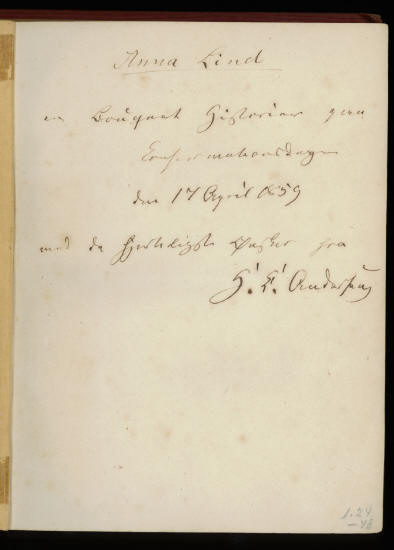 Anna Lind
en Bouquet Historier paa
Confirmationsdagen
den 17 April 1859
med de hjerteligste Ønsker fra
H. C. Andersen
1.24
-48